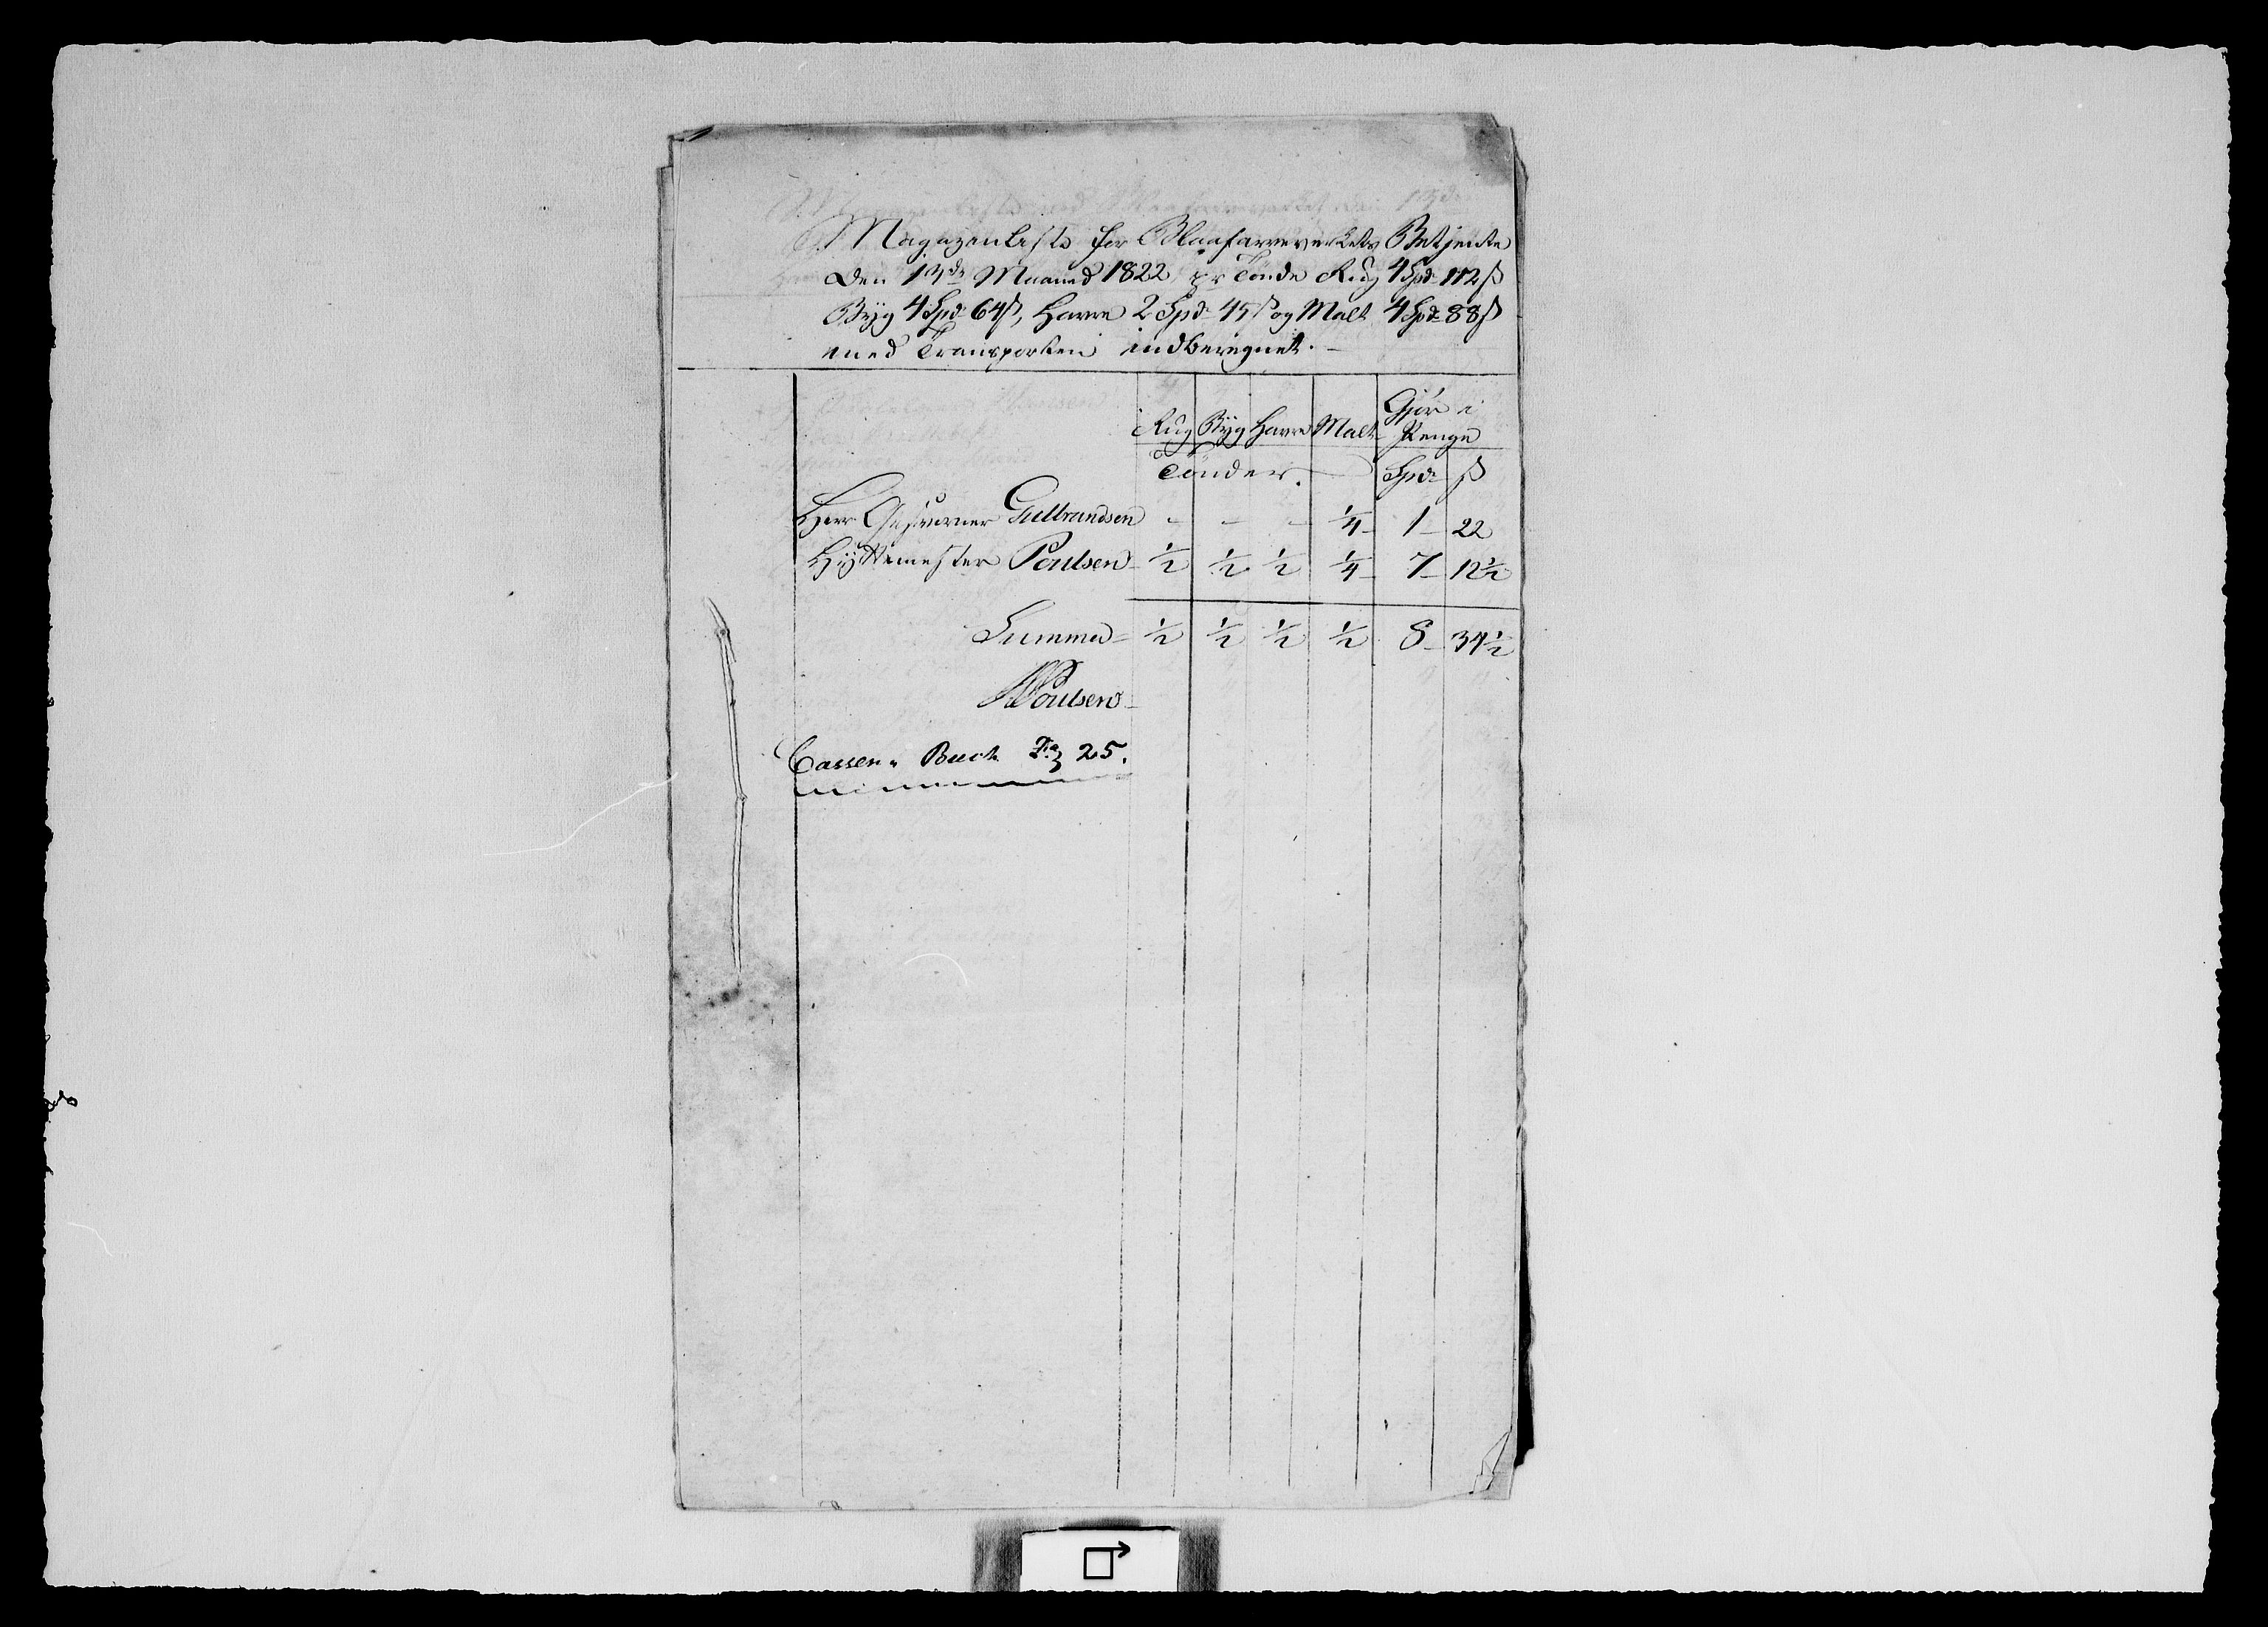 Magazenliste for Blaafarveverkets Betjente
den 13de Maaned 1822, pr Tönde Rug 4 Spd 112 ß
Byg 4 Spd 64 ß, Havre 2 Spd 45 ß og Malt 4 Spd 88 ß
med Transporten indberegnet. -
Rug Byg Havre Malt Gjør i Penge
Tönder. Spd ß
Herr Geschworner Gulbrandsen - - - 1/4 1 22
Hyttemester Poulsen 1/2 1/2 1/2 1/4 7 12 1/2
Summa 1/2 1/2 1/2 1/2 8 34 1/2
Poulsen
Cassen Buch 25.